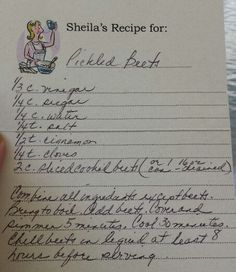 Sheila's Recipe for:
Pickled Beets
1/3 c. vinegar
1/4 c. sugar
1/4 c. water
1/4 t. salt
1/2 t. cinnamon
1/4 t. cloves
2 c. sliced cooked beets (or 1 16 oz can - drained)
Combine all ingredients except beets.
Bring to boil. Add beets, Cover and
simmer 5 minutes. Cool 30 minutes.
Chill beets in liquid at least 8
hours before serving